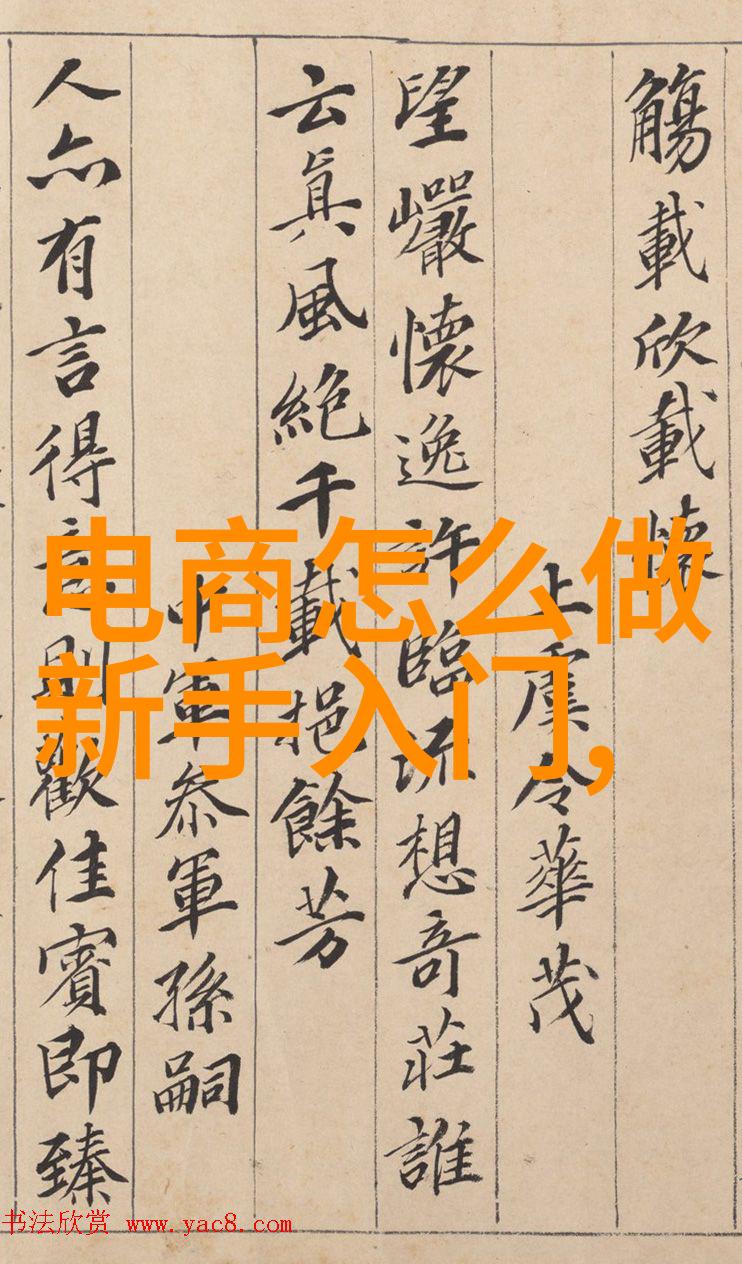 觴載欣載懷
上虞令華茂
望巗懷逸許臨流想奇莊誰
云眞風絶千載挹餘芳
中軍叅軍孫嗣
人亦有言得意則歡佳賓即臻
电商怎么做
新手入门,
书法欣赏 www.yac8.com